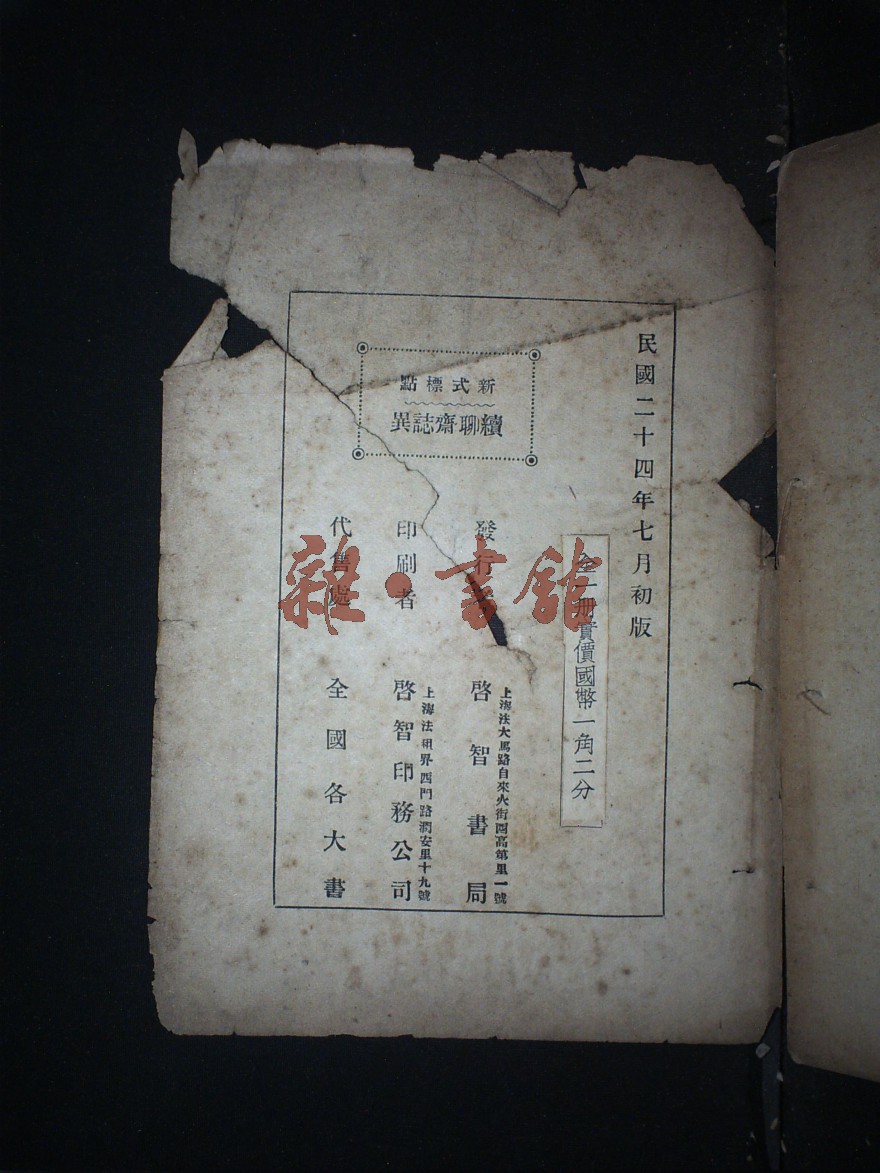 民國二十四年七月初版
全一册實價國幣一角二分
新式標點
續聊齋誌異
發行
上海法大馬路自來火街西高第里一號
啓智書局
印刷者
上海法租界西門路潤安里十九號
啓智印務公司
代售處
全國各大書
雜·書館